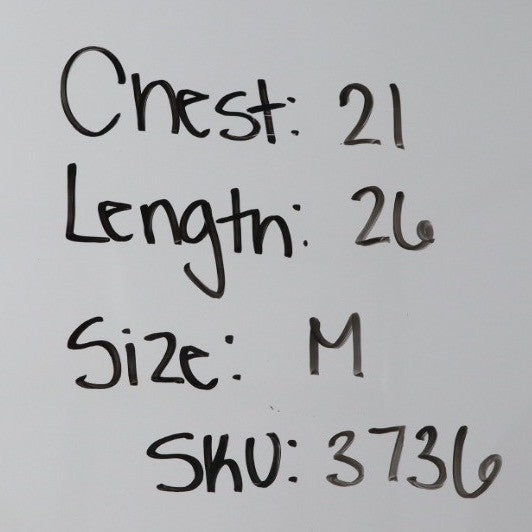 Chest: 21
Length: 26
Size: M
SKU: 3736